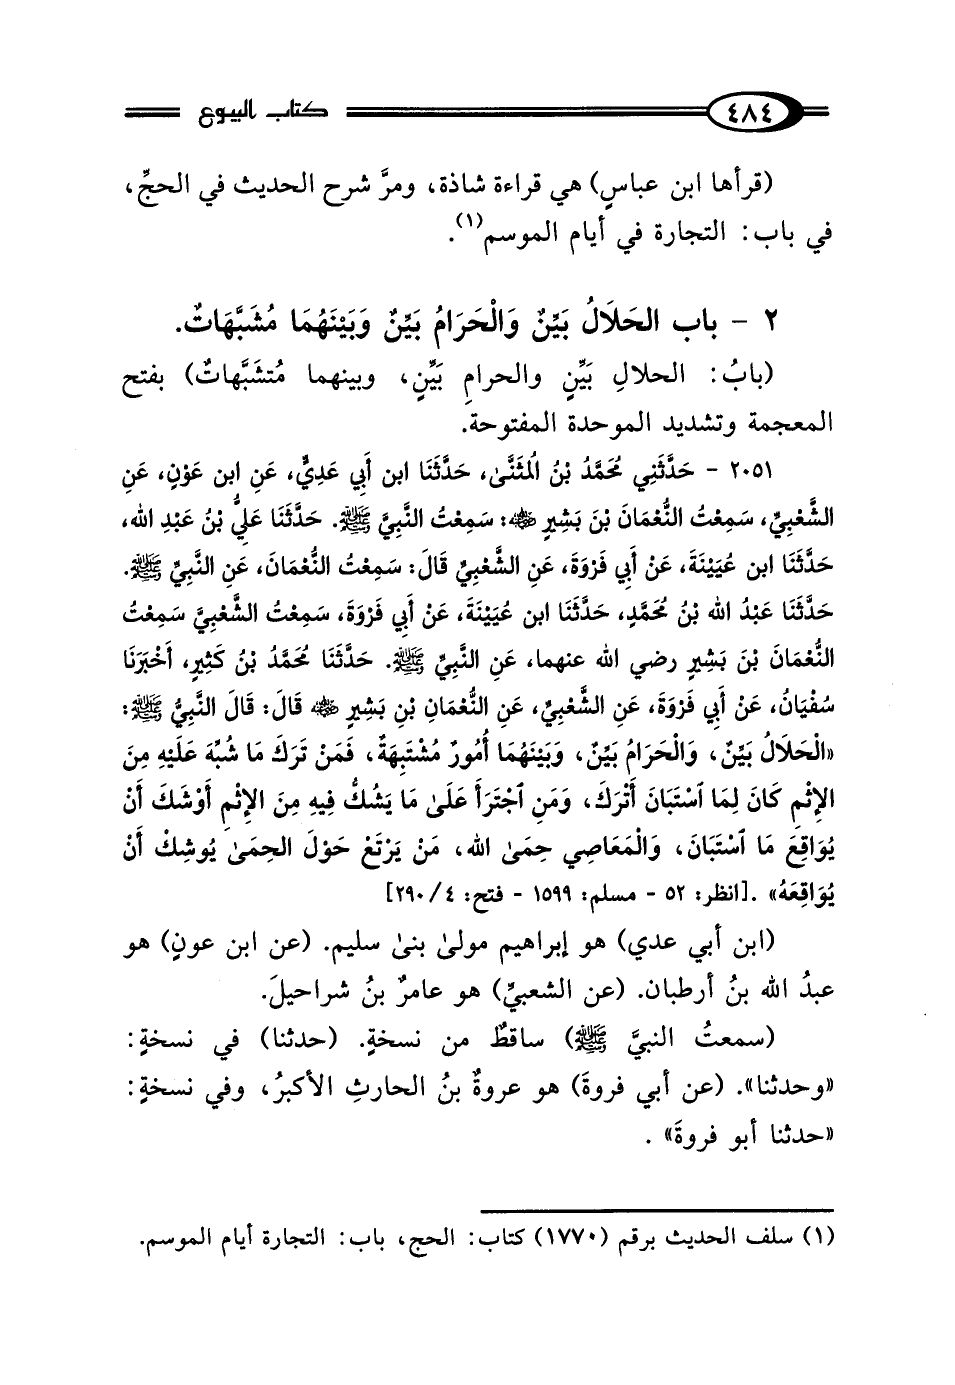 ٤٨٤ كتاب البيوع
(قرأها ابن عباسٍ) هي قراءة شاذة، ومرَّ شرح الحديث في الحجِّ،
في باب: التجارة في أيام الموسم(١).
٢ - باب الحَلَالُ بَيِّنٌ وَالْحَرَامُ بَيِّنٌ وَبَيْنَهُمَا مُشَبَّهَاتٌ.
(بابُ: الحلالِ بَيِّنٍ والحرامِ بَيِّنٍ، وبينهما مُتشَبَّهاتٌ) بفتح
المعجمة وتشديد الموحدة المفتوحة.
٢٠٥١ - حَدَّثَنِي مُحَمَّدُ بْنُ الْمُثَنَّىٰ، حَدَّثَنَا ابن أَبِي عَدِيٍّ، عَنِ ابن عَوْنٍ، عَنِ
الشَّعْبِيِّ، سَمِعْتُ النُّعْمَانَ بْنَ بَشِيرٍ ﵁: سَمِعْتُ النَّبِيَّ ﷺ. حَدَّثَنَا عَلِيُّ بْنُ عَبْدِ الله،
حَدَّثَنَا ابن عُيَيْنَةَ، عَنْ أَبِي فَرْوَةَ، عَنِ الشَّعْبِيِّ قَالَ: سَمِعْتُ النُّعْمَانَ، عَنِ النَّبِيِّ ﷺ.
حَدَّثَنَا عَبْدُ الله بْنُ مُحَمَّدٍ، حَدَّثَنَا ابن عُيَيْنَةَ، عَنْ أَبِي فَرْوَةَ، سَمِعْتُ الشَّعْبِيَّ سَمِعْتُ
النُّعْمَانَ بْنَ بَشِيرٍ رضي الله عنهما، عَنِ النَّبِيِّ ﷺ. حَدَّثَنَا مُحَمَّدُ بْنُ كَثِيرٍ، أَخْبَرَنَا
سُفْيَانُ، عَنْ أَبِي فَرْوَةَ، عَنِ الشَّعْبِيِّ، عَنِ النُّعْمَانِ بْنِ بَشِيرٍ ﵁ قَالَ: قَالَ النَّبِيُّ ﷺ:
«الْحَلَالُ بَيِّنٌ، وَالْحَرَامُ بَيِّنٌ، وَبَيْنَهُمَا أُمُورٌ مُشْتَبِهَةٌ، فَمَنْ تَرَكَ مَا شُبِّهَ عَلَيْهِ مِنَ
الإِثْمِ كَانَ لِمَا اسْتَبَانَ أَتْرَكَ، وَمَنِ اجْتَرَأَ عَلَىٰ مَا يَشُكُّ فِيهِ مِنَ الإِثْمِ أَوْشَكَ أَنْ
يُوَاقِعَ مَا اسْتَبَانَ، وَالْمَعَاصِي حِمَى الله، مَنْ يَرْتَعْ حَوْلَ الحِمَىٰ يُوشِكْ أَنْ
يُوَاقِعَهُ» .[انظر: ٥٢ - مسلم: ١٥٩٩ - فتح: ٤/ ٢٩٠]
(ابن أبي عدي) هو إبراهيم مولىٰ بنىٰ سليم. (عن ابن عونٍ) هو
عبدُ الله بنُ أرطبان. (عن الشعبيِّ) هو عامرُ بنُ شراحيلَ.
(سمعتُ النبيَّ ﷺ) ساقطٌ من نسخةٍ. (حدثنا) في نسخةٍ:
«وحدثنا». (عن أبي فروةَ) هو عروةُ بنُ الحارثِ الأكبرُ، وفي نسخةٍ:
«حدثنا أبو فروةَ» .
(١) سلف الحديث برقم (١٧٧٠) كتاب: الحج، باب: التجارة أيام الموسم.